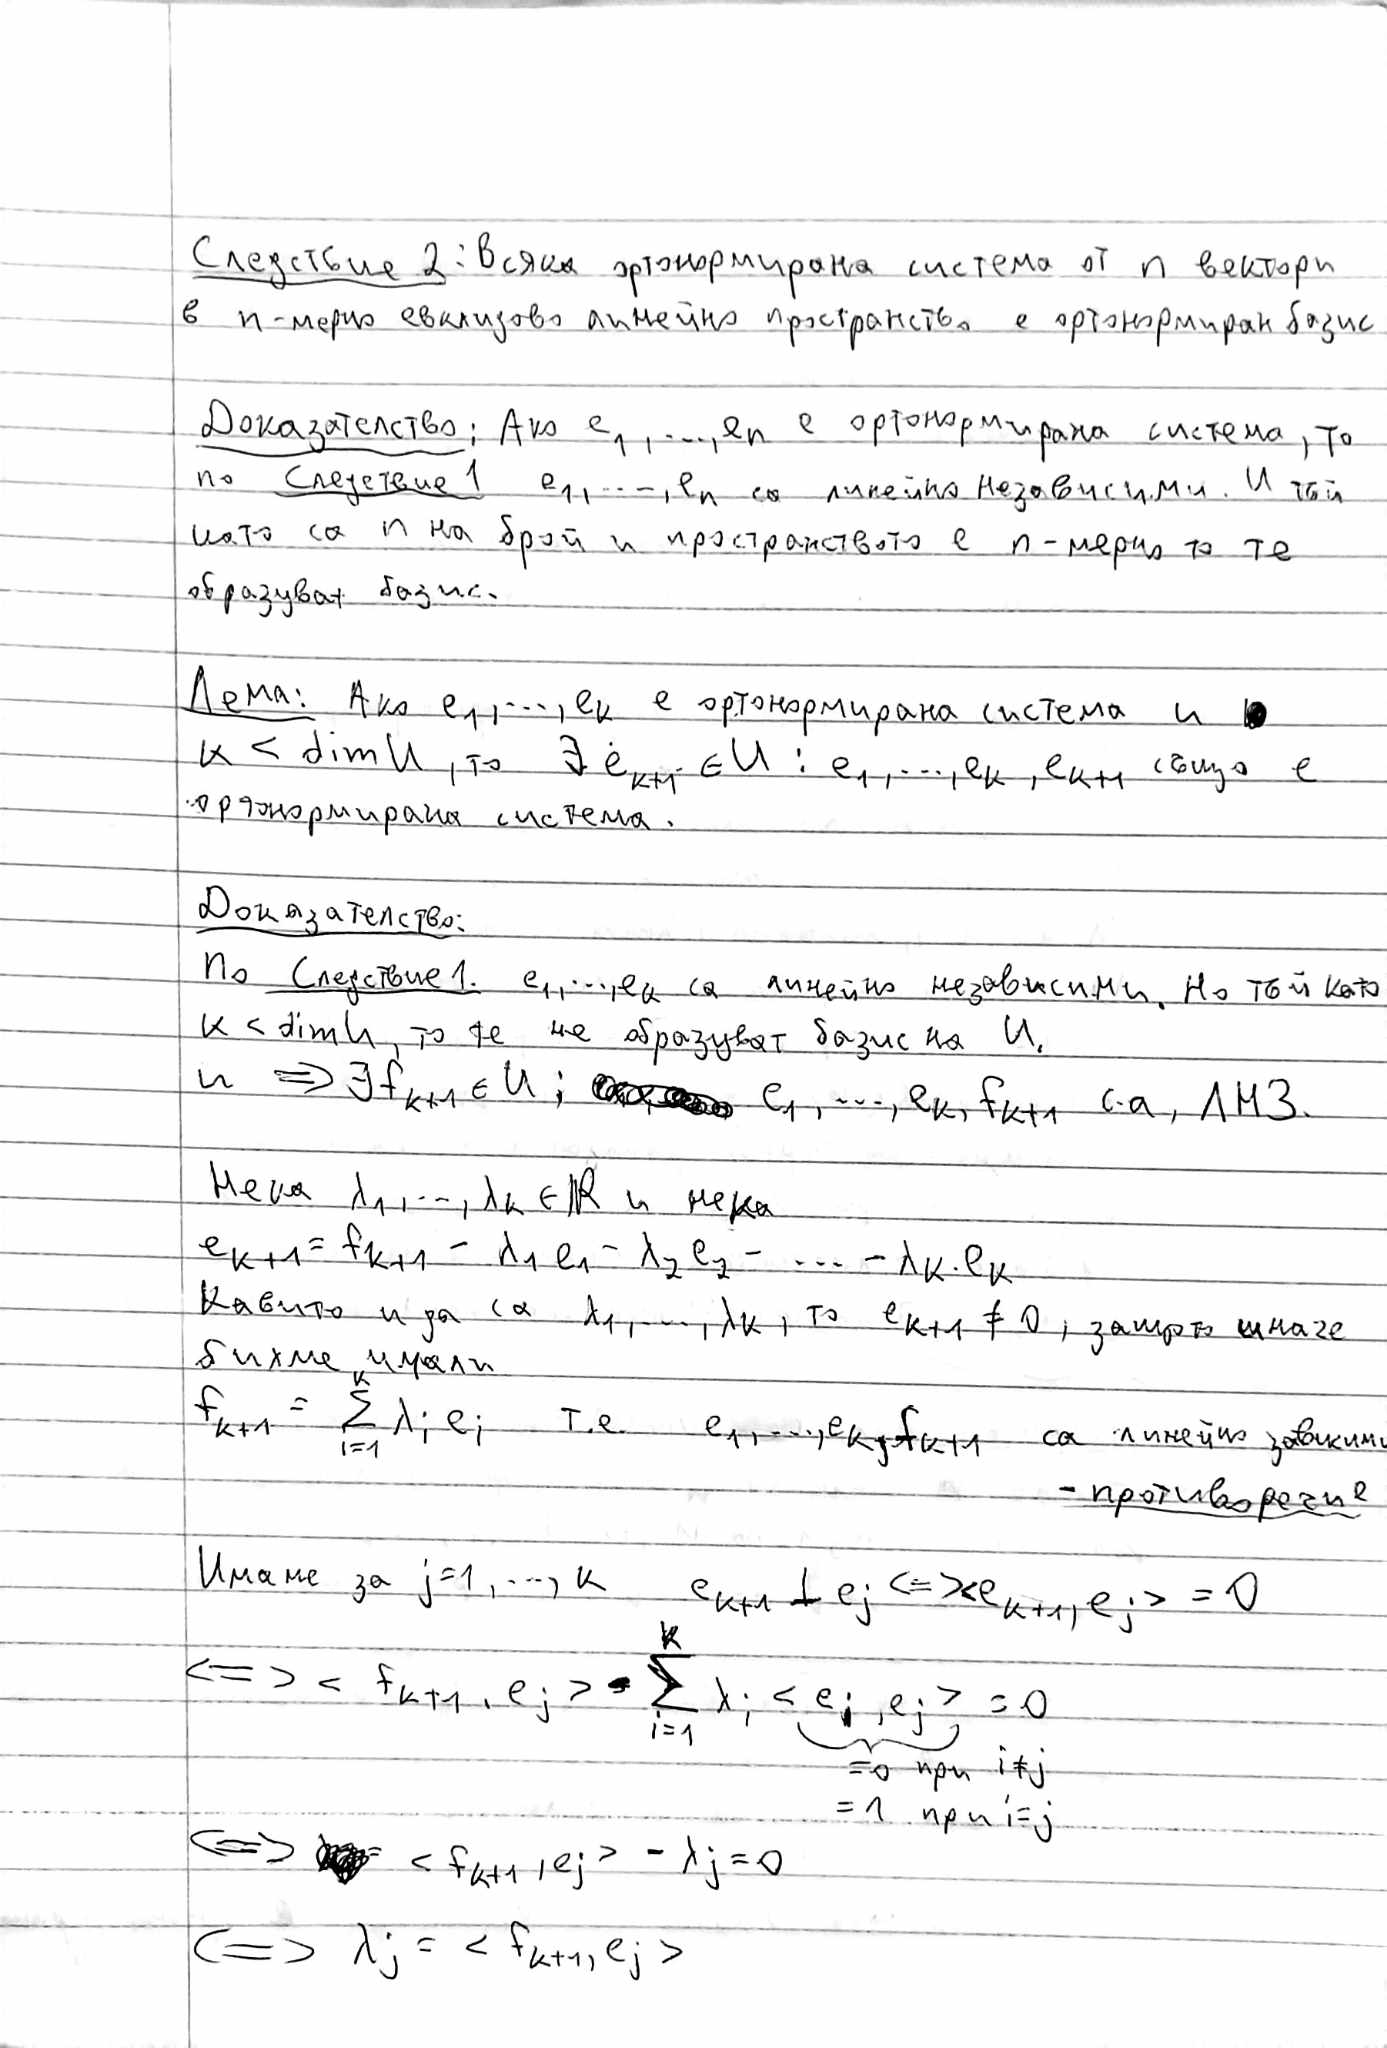 Следствие 2: Всяка ортонормирана система от n вектори
в n-мерно евклидово линейно пространство е ортонормиран базис
Доказателство: Ако e₁,...,eₙ е ортонормирана система, то
по Следствие 1 e₁,...,eₙ са линейно независими. И тъй
като са n на брой и пространството е n-мерно то те
образуват базис.
Лема: Ако e₁,...,eₖ е ортонормирана система и
k < dim U, то ∃ eₖ₊₁ ∈ U : e₁,...,eₖ, eₖ₊₁ също е
ортонормирана система.
Доказателство:
По Следствие 1. e₁,...,eₖ са линейно независими. Но тъй като
k < dim U, то те не образуват базис на U.
и => ∃ fₖ₊₁ ∈ U ; e₁,...,eₖ, fₖ₊₁ са ЛНЗ.
Нека λ₁,...,λₖ ∈ ℝ и нека
eₖ₊₁ = fₖ₊₁ - λ₁e₁ - λ₂e₂ - ... - λₖ.eₖ
Каквито и да са λ₁,...,λₖ, то eₖ₊₁ ≠ 0, защото иначе
бихме имали
fₖ₊₁ = ∑ᵢ₌₁ᵏ λᵢeᵢ т.е. e₁,...,eₖ, fₖ₊₁ са линейно зависими
- противоречие
Имаме за j=1,...,k eₖ₊₁ ⊥ eⱼ <=> <eₖ₊₁, eⱼ> = 0
<=> < fₖ₊₁, eⱼ > - ∑ᵢ₌₁ᵏ λᵢ < eᵢ, eⱼ > = 0
=0 при i≠j
=1 при i=j
<=> < fₖ₊₁, eⱼ > - λⱼ = 0
<=> λⱼ = < fₖ₊₁, eⱼ >